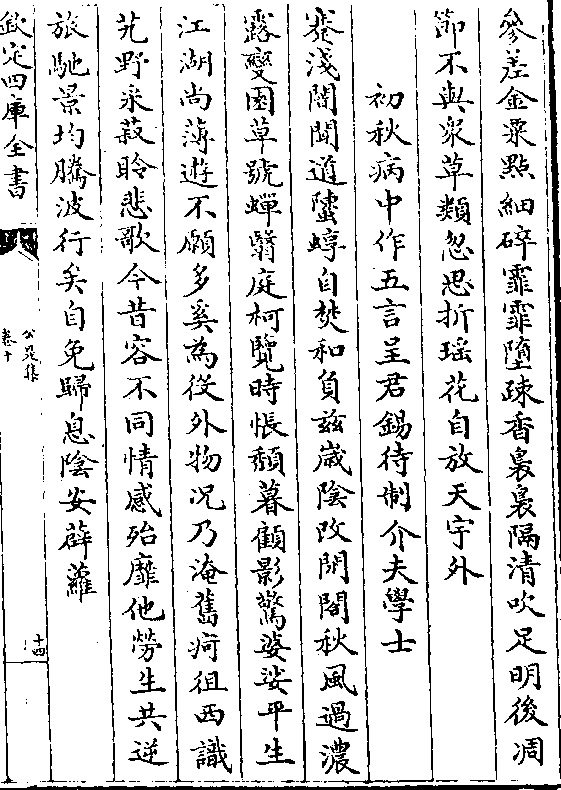 參差金粟㸃細碎霏霏墮疎香裊裊隔清吹足明後凋
節不與衆草類忽思折瑶花自放天宇外
初秋病中作五言呈君錫待制介夫學士
蹇淺闇聞道蠻蜳自焚和負兹歲陰改閉閤秋風過濃
露變園草號蟬翳庭柯覽時悵頽暮顧影驚婆娑平生
江湖尚薄遊不願多奚為役外物况乃淹舊痾徂西識
艽野采菽聆悲歌今昔容不同情感殆靡他勞生共逆
旅馳景均騰波行矣自免歸息陰安薜蘿
欽定四庫全書
公是集
卷十
十四